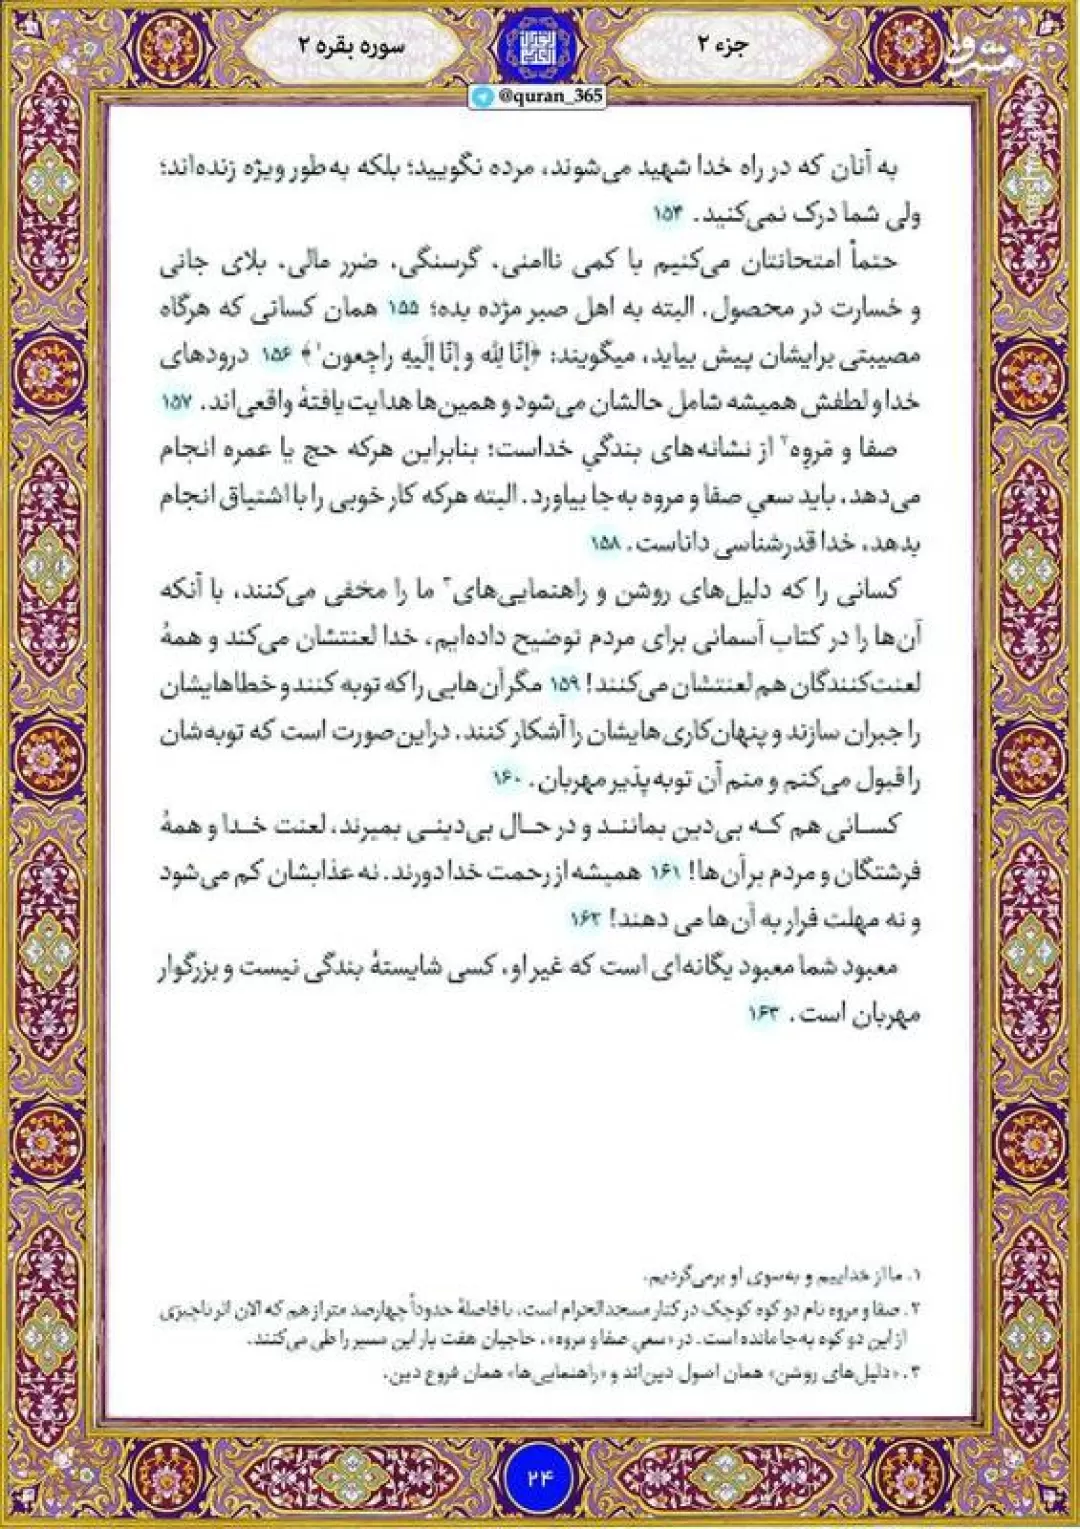 جزء ۲
سوره بقره ۲
مشرق
@quran_365
به آنان که در راه خدا شهید می‌شوند، مرده نگویید؛ بلکه به‌طور ویژه زنده‌اند؛
ولی شما درک نمی‌کنید. ۱۵۴
حتماً امتحانتان می‌کنیم با کمی ناامنی، گرسنگی، ضرر مالی، بلای جانی
و خسارت در محصول. البته به اهل صبر مژده بده؛ ۱۵۵ همان کسانی که هرگاه
مصیبتی برایشان پیش بیاید، میگویند: ﴿اِنّا لِلّٰه و اِنّا اِلَیهِ راجِعون۱﴾ ۱۵۶ درودهای
خدا و لطفش همیشه شامل حالشان می‌شود و همین‌ها هدایت‌یافتهٔ واقعی‌اند. ۱۵۷
صفا و مَروه۲ از نشانه‌های بندگیِ خداست؛ بنابراین هرکه حج یا عمره انجام
می‌دهد، باید سعیِ صفا و مروه به‌جا بیاورد. البته هرکه کار خوبی را با اشتیاق انجام
بدهد، خدا قدرشناسی داناست. ۱۵۸
کسانی را که دلیل‌های روشن و راهنمایی‌های۳ ما را مخفی می‌کنند، با آنکه
آن‌ها را در کتاب آسمانی برای مردم توضیح داده‌ایم، خدا لعنتشان می‌کند و همهٔ
لعنت‌کنندگان هم لعنتشان می‌کنند! ۱۵۹ مگر آن‌هایی را که توبه کنند و خطاهایشان
را جبران سازند و پنهان‌کاری‌هایشان را آشکار کنند. دراین‌صورت است که توبه‌شان
را قبول می‌کنم و منم آن توبه‌پذیر مهربان. ۱۶۰
کسانی هم که بی‌دین بمانند و در حال بی‌دینی بمیرند، لعنت خدا و همهٔ
فرشتگان و مردم بر آن‌ها! ۱۶۱ همیشه از رحمت خدا دورند. نه عذابشان کم می‌شود
و نه مهلت فرار به آن‌ها می دهند! ۱۶۲
معبود شما معبود یگانه‌ای است که غیر او، کسی شایستهٔ بندگی نیست و بزرگوار
مهربان است. ۱۶۳
۱. ما از خداییم و به‌سوی او برمی‌گردیم.
۲. صفا و مروه نام دو کوه کوچک در کنار مسجدالحرام است، با فاصلهٔ حدوداً چهارصد متر از هم که الان اثر ناچیزی
از این دو کوه به‌جا مانده است. در «سعیِ صفا و مروه»، حاجیان هفت بار این مسیر را طی می‌کنند.
۳. «دلیل‌های روشن» همان اصول دین‌اند و «راهنمایی‌ها» همان فروع دین.
۲۴